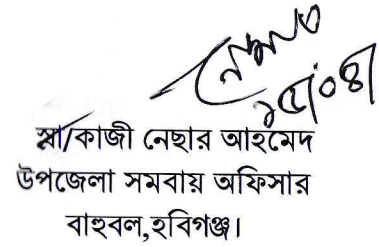 ১৫/০৪/
স্বা/কাজী নেছার আহমেদ
উপজেলা সমবায় অফিসার
বাহুবল,হবিগঞ্জ।